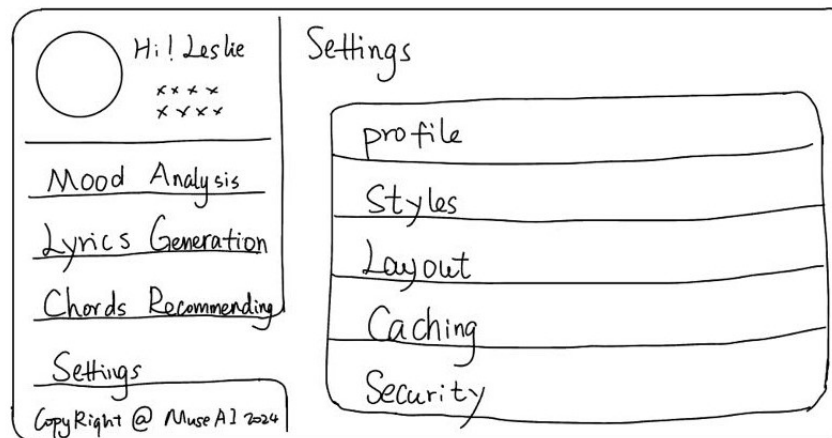 Hi! Leslie
xxxx
xxxx
Mood Analysis
Lyrics Generation
Chords Recommending
Settings
CopyRight @ MuseAI 2024
Settings
profile
Styles
Layout
Caching
Security